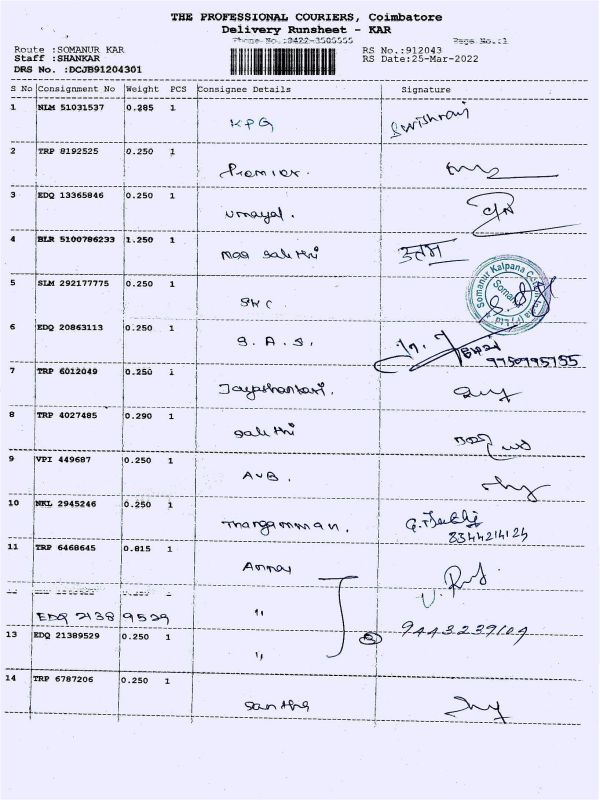 THE PROFESSIONAL COURIERS, Coimbatore
Delivery Runsheet - KAR
Phone No.:0422-3505555 Page No.:1
Route :SOMANUR KAR RS No.:912043
Staff :SHANKAR RS Date:25-Mar-2022
DRS No. :DCJB91204301
S No Consignment No Weight PCS Consignee Details Signature
1 NLM 51031537 0.285 1
KPG
2 TRP 8192525 0.250 1
Premier.
3 EDQ 13365846 0.250 1
Umayal.
4 BLR 5100786233 1.250 1
sakthi
5 SLM 292177775 0.250 1
SWC
6 EDQ 20863113 0.250 1
S.A.S.
9750795755
7 TRP 6012049 0.250 1
Jayashankari.
8 TRP 4027485 0.290 1
sakthi
9 VPI 449687 0.250 1
AVB.
10 NKL 2945246 0.250 1
Thangamman.
8344214124
11 TRP 6468645 0.815 1
Annai
12
EDQ 2138 9529 "
9443239109
13 EDQ 21389529 0.250 1 3
"
14 TRP 6787206 0.250 1
Santha